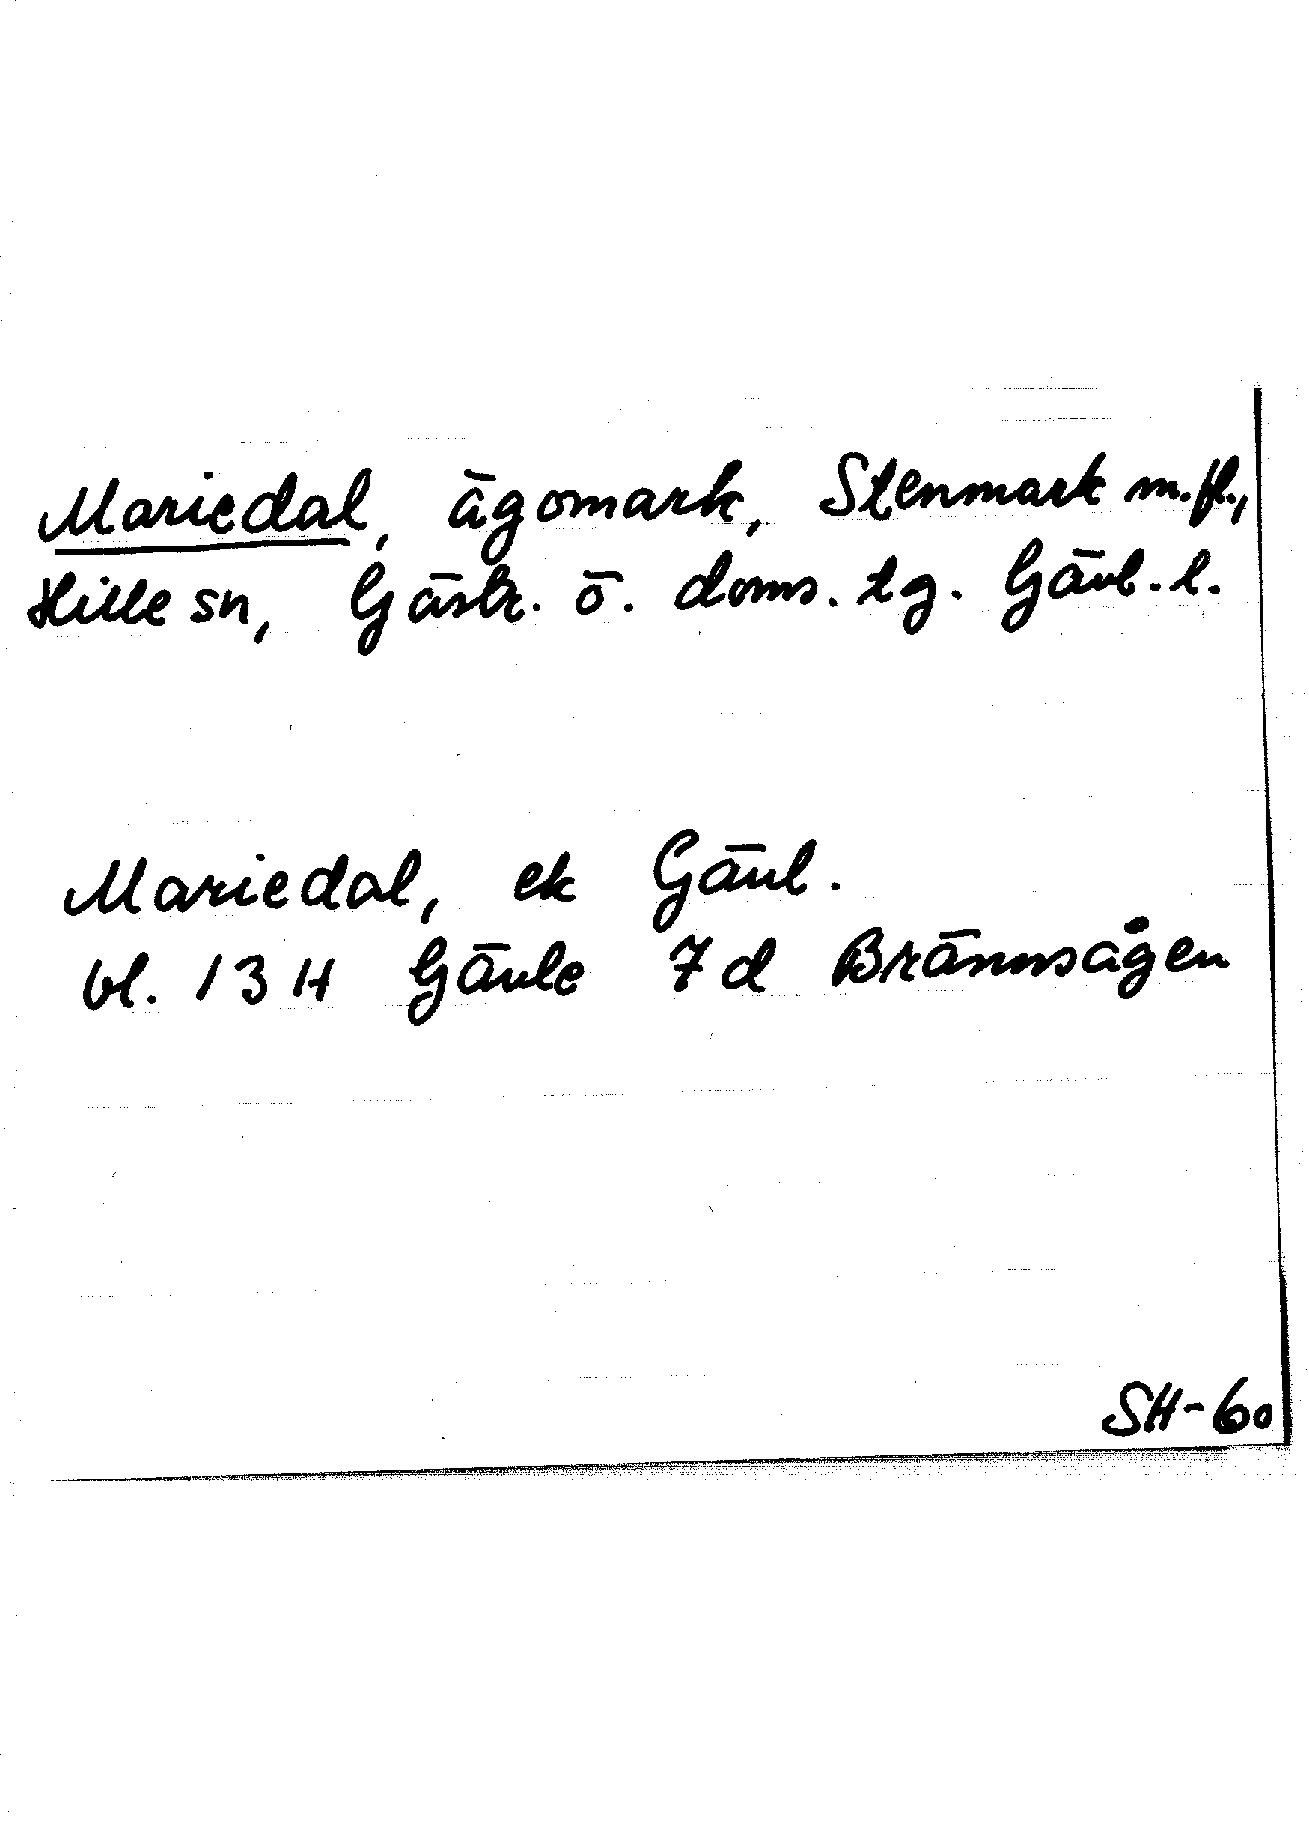 Mariedal, ägomark, Stenmark m.fl.,
Hille sn, Gästr. ö. doms. tg. Gävl. l.
Mariedal, ek Gävl.
bl. 13 H Gävle 7 d Brännsågen
SH-60